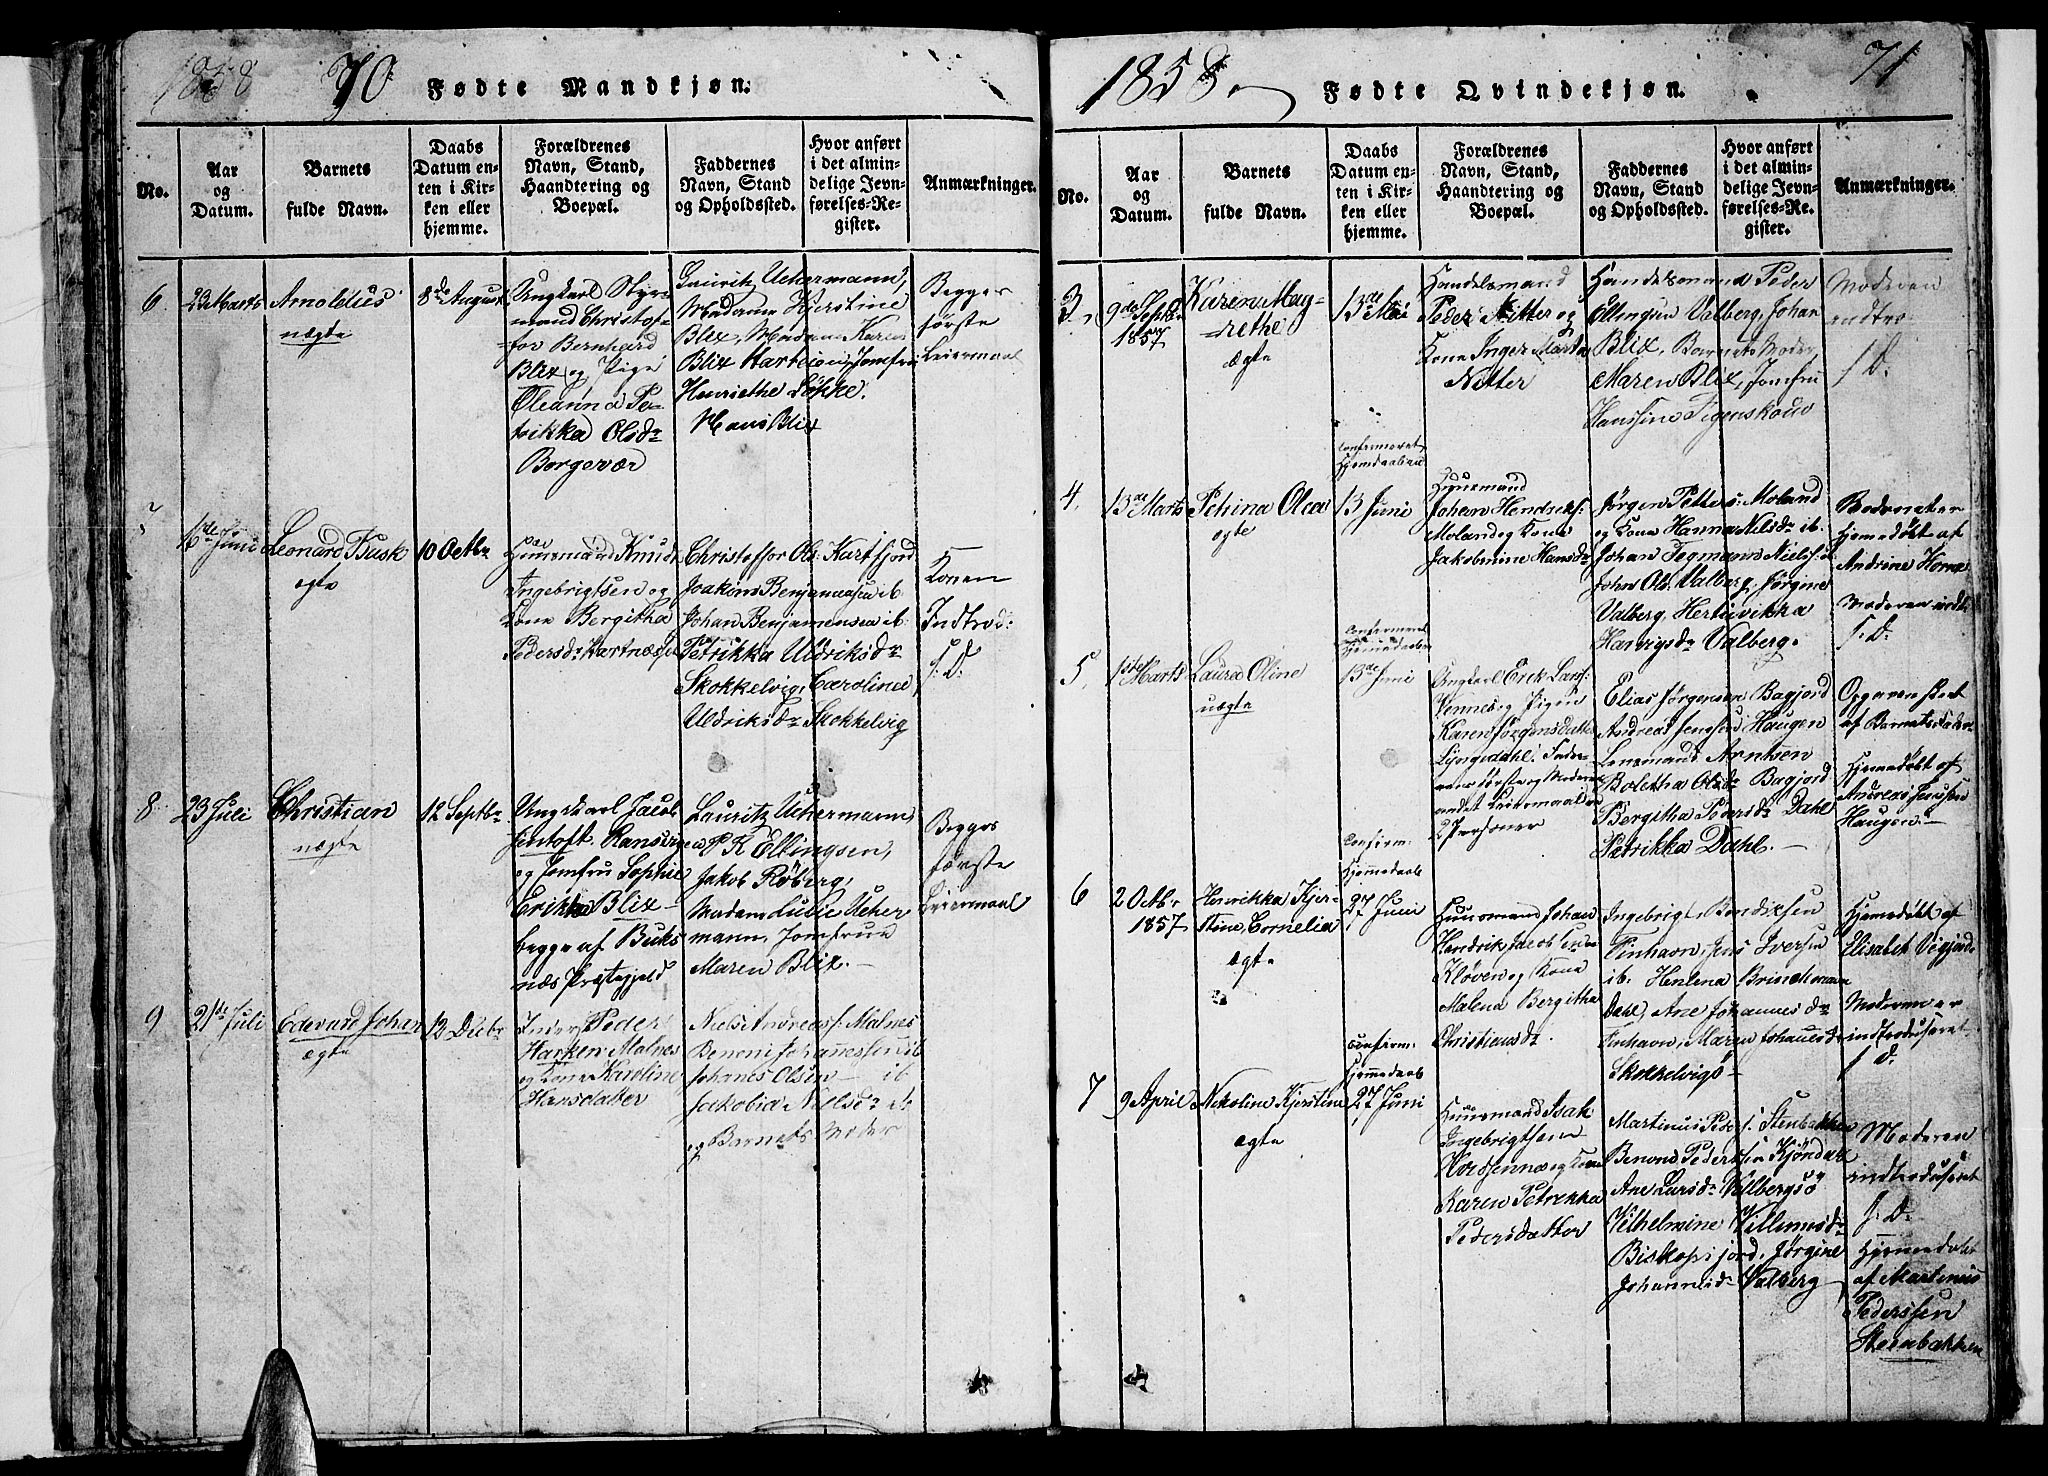 1858
70
Fødte Mandkjøn.
No.
Aar
og
Datum.
Barnets
fulde Navn.
Daabs
Datum en-
ten i Kir-
ken eller
hjemme.
Forældrenes
Navn, Stand,
Haandtering og
Boepæl.
Faddernes
Navn, Stand
og Opholdssted.
Hvor anført
i det almin-
delige Jevn-
førelses-Re-
gister.
Anmærkninger.
6
23 Marts
Arnoldus
uægte
8de August
Ungkarl Styr-
mand Christof-
for Bernhard
Blix og Pige
Oleanna Pe-
trikka Olsdr
Borgevær
Lauritz Uchermann,
Madame Kjerstine
Blix, Madame Karen
Blix Jomfru
Henriethe Løkke.
Hans Blix
Begges
første
Leiermaal
16de Juni
Leonard Busk
ægte
10 Octbr
Huusmand Knud
Ingebrigtsen og
Kone Bergitha
Pedersdr
Christoffor Ols. Kartfjord
Joakom Benjaminsen ib
Johan Benjaminsen ib.
Petrikka Uldriksdr
Skokkelvig, Caroline
Uldriksdr Skokkelvig
Konen
Indtrod:
f. D.
8
23 Juli
Christian
uægte
12 Septbr
Ungkarl Jacob
Jentoft
og Jomfru Sophie
Erikka Blix
begge af Buks
næs Præstegjeld
Lauritz Uchermann
P K Ellingsen,
Jakob Røberg,
Madame Lucie Ucher
mann, Jomfrue
Maren Blix.
Begges
første
Leiermaal
9
21de Juli
Edevard Johan
ægte
12 Decbr
Inders Peder
Harken Malnes
og Kone Karoline
Hansdatter
Niels Andreas f. Malnes
Benoni Johannessen ib
Johanes Olsen ib
Jakobia Nielsdr ib
og Barnets Moder
1858
71
Fødte Qvindekjøn.
No.
Aar
og
Datum.
Barnets
fulde Navn.
Daabs
Datum en-
ten i Kir-
ken eller
hjemme.
Forældrenes
Navn, Stand,
Haandtering og
Boepæl.
Faddernes
Navn, Stand
og Opholdssted.
Hvor anført
i det almin-
delige Jevn-
førelses-Re-
gister.
Anmærkninger.
3
9de Septbr
1857
Karen Mag-
rethe
ægte
13de Mai
Handelsmand
Peder Nitter og
Kone Inger Marta
Nitter
Handelsmand Peder
Ellengsen Valberg, Johan
Blix, Barnets Moder,
Maren Blix, Jomfru
Hanssine Figenskouv
Moderen
indtr
f D.
4
13de Marts
Pehina Olea
ægte
Confirmeret
Hjemdaaben
13 Juni
Huusmand
Johan Hendrikf:
Moland og Kone
Jakobmine Hansdr
Jørgen Petters: Moland
og Kone Hanna Nilsdr ib.
Johan Tegmann Nielsf: ib
Johan Ols. Valberg, Jørgine
Valberg, Hertuvikka
Harvigsdr Valberg.
Hjemedøbt af
Andrine
Moderen indtr
f. D.
5
1ste Marts
Laura Oline
uægte
Confirmeret
Hjemedaaben
13de Juni
Ungkarl Erik Larsf:
Vennes og Pigen
Karen Jørgensdatter
Lyngedahl. Fade-
rens første og Moderens
andet Leiermaal
2 Personer
Elias Jørgensen Bagjord
Andreas Jenssen Haugen
Lensmand Arntsen
Boletha Olsdr Bagjord
Bergitha Pedersdr Dahl
Petrikka Dahl.
Opgaven
af Barnets Fader
Hjemedøbt af
Andreas Jenssen
Haugen.
6
2 Octbr
1857
Henrikka Kjer-
stine Cornelia
ægte
Confirm.
Hjemmedaab
27 Juni
Huusmand Johan
Hendrik Jacobsen
Kløven og Kone
Malena Bergitha
Christiansdr.
Ingebrigt Bendiksen
Finhavn, Jens Iversen
ib. Henlena Brinchmann
Dahl, Ane Johannesdr
Finhavn, Maren Johanesdr
Skokkelvig
Hjemedøbt af
Elisabet Vigjord
Moderen er
indtroduseret
f D.
7
9 April
Nikoline Kjerstine
ægte
Confirm.
Hjemmedaab
27 Juni
Huusmand Isak
Ingebrigtsen
og Kone
Karen Petrekka
Pedersdatter
Martinus Peders: Stenbakken
Benond Pedersen Kjøndal
Ane Larsdr Valbergsø
Vilhelmine Villumsdr
Biskopsjord, Jørgine
Johannesdr Valberg
Moderen
indtroduseret
f. D.
Hjemmedøbt
af Martinus
Pederssen
Stenbakken